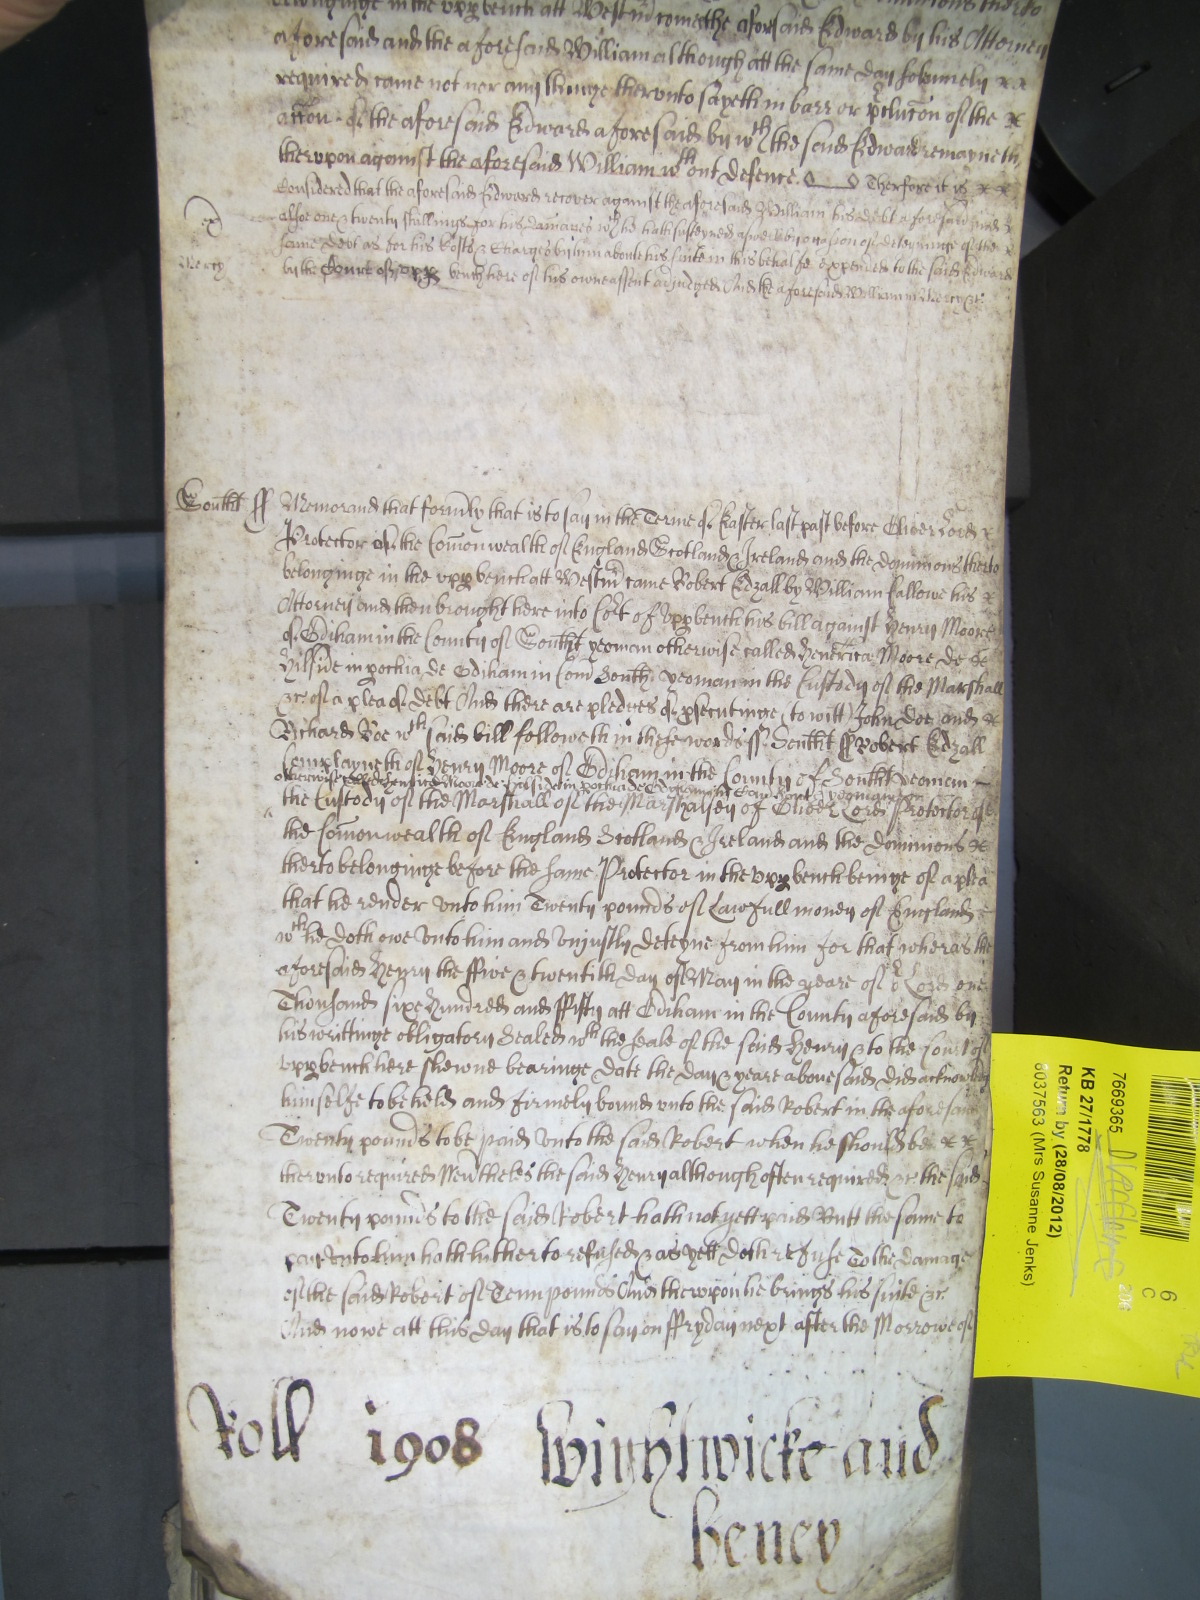 belonginge in the vpp bench att Westm come the aforesaid Edward by his Attorney
aforesaid and the aforesaid William although att the same day solemnely
required came not nor any thinge thervnto sayeth in barr or pclucon of the
accon of the aforesaid Edward aforesaid by wth the said Edward remayneth
thervpon against the aforesaid William wthout defence. Therfore it is
Considered that the aforesaid Edward recover against the aforesaid William his debt aforesaid and
alsoe one & twenty shillings for his damages wch he hath susteyned aswell by occasion of the deteyninge of the
same debt as for his Costs & Charges by him aboute his suite in this behalfe expended to the said Edward
Mercy
by the Court of vpp bench here of his owne assent adjudged And the aforesaid William in Mercy &c
Southt ss Memorand that formly that is to say in the Terme of Easter last past before Oliver Lord
Protector of the Comonwealth of England Scotland & Ireland and the dominions therto
belonginge in the vpp bench att Westm came Robert Edzall by William Fallowe his
Attorney and then brought here into Cort of vpp bench his bill against Henry Moore
of Odiham in the County of Southt yeoman otherwise called Henrica Moore de le
Hilside in pochia de Odiham in Com South yeoman in the Custody of the Marshall
&c of a plea of debt And there are pledges of psecutinge (to witt) John Doe and
Richard Roe wch said bill followeth in these words ss Southt ss Robert Edzall
Complayneth of Henry Moore of Odiham in the County of Southt yeoman
otherwise called Henrica Moore de le Hilside in pochia de Odiham in Com South yeoman in
the Custody of the Marshall of the Marshalsey of Oliver Lord Protector of
the Comonwealth of England Scotland & Ireland and the dominions
therto belonginge before the same Protector in the vpp bench beinge of a plea
that he render vnto him Twenty pounds of Lawfull money of England
wch he doth owe vnto him and vnjustly deteyne from him for that wheras the
aforesaid Henry the ffive & twentith day of May in the yeare of or Lord one
Thousand sixe hundred and ffifty att Odiham in the County aforesaid by
his writtinge obligatory Sealed wth the seale of the said Henry & to the Court of
vpp bench here shewne bearinge date the day & yeare abovesaid did acknowledg
himselfe to be held and firmely bound vnto the said Robert in the aforesaid
Twenty pounds to be paid vnto the said Robert when he should be
thervnto required Nevtheles the said Henry although often required &c the said
Twenty pounds to the said Robert hath not yett paid Butt the same to
pay vnto him hath hitherto refused & as yett doth refuse To the damage
of the said Robert of Tenn pounds And thervpon he brings his suite &c
And nowe att this day that is to say on ffryday next after the Morrowe of
Roll 1908 Winchlwicke and
heney
7669365
KB 27/1778
Return by (28/08/2012)
8037563 (Mrs Susanne Jenks)
6
C
206